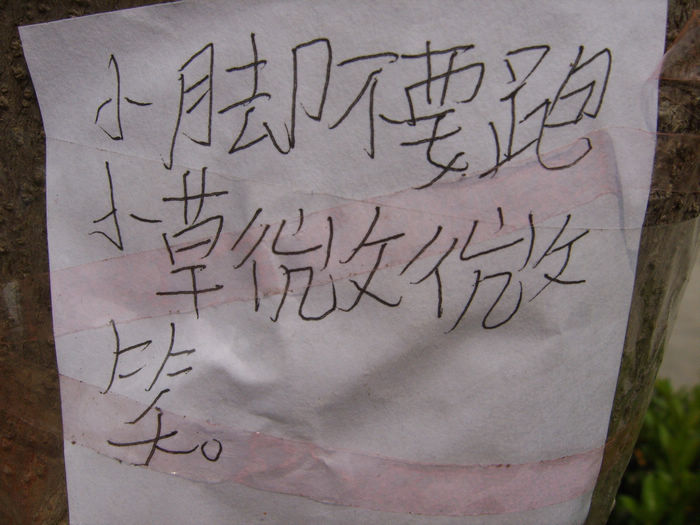 小脚不要跑
小草微微
笑。